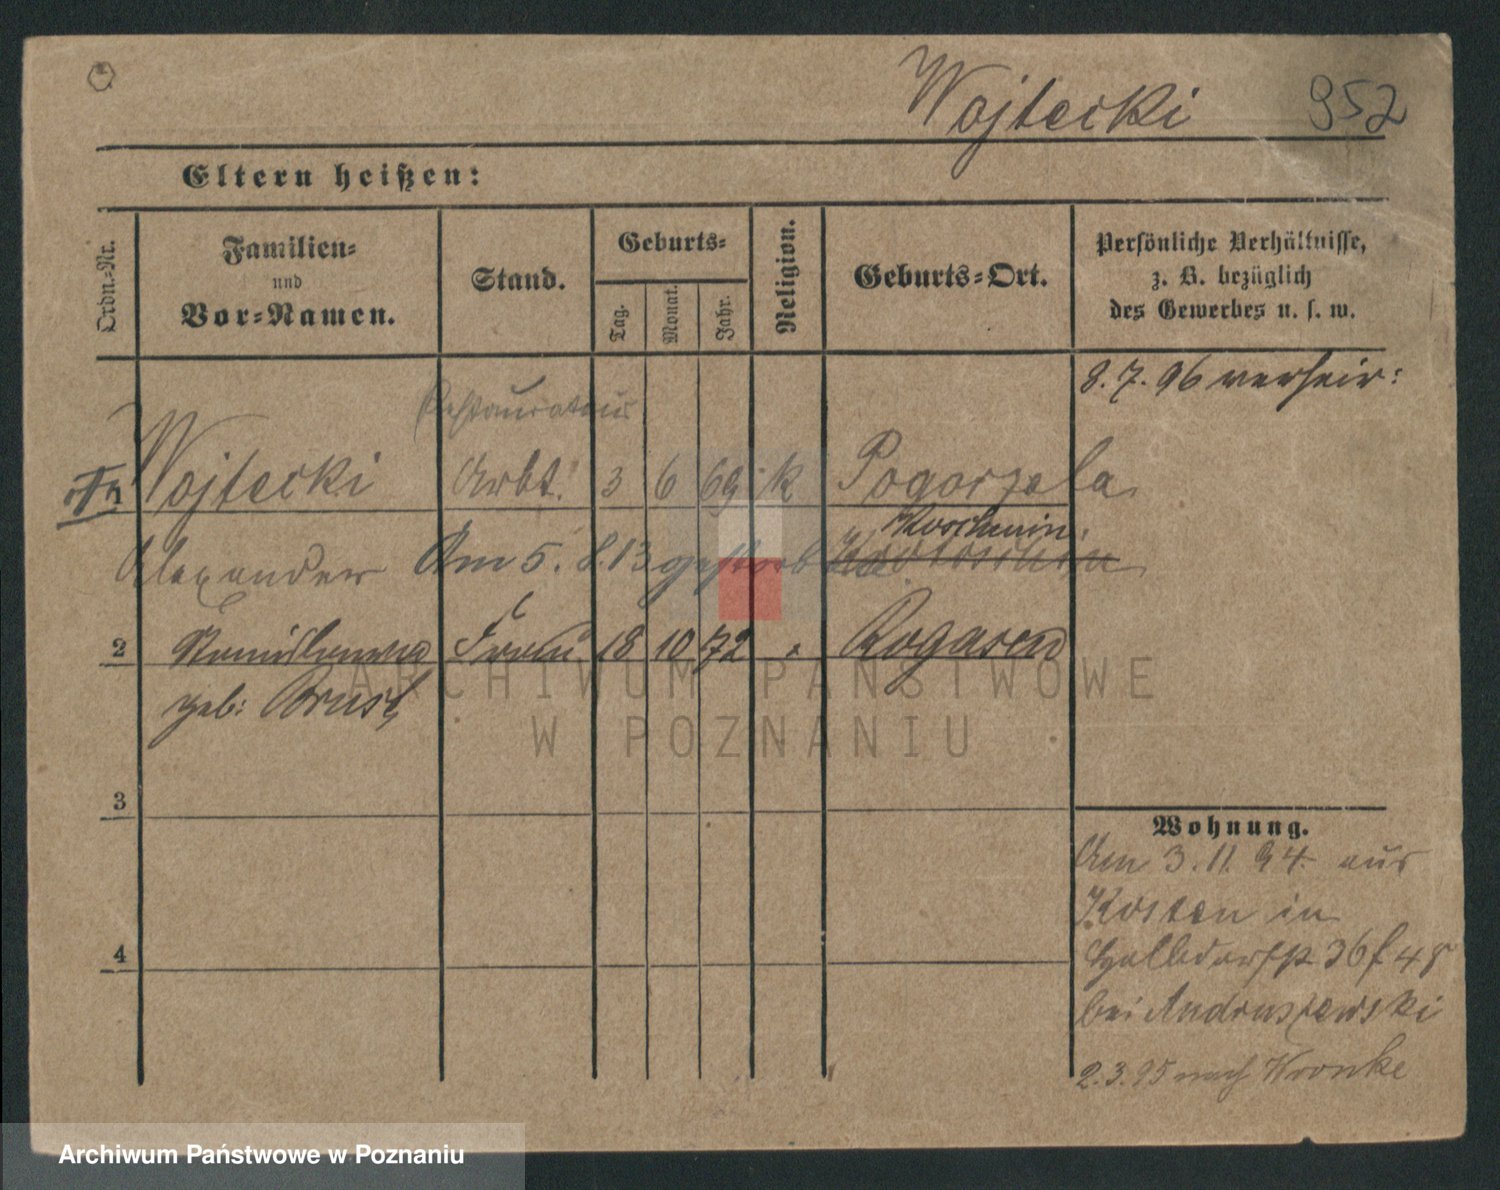 Wojtecki 952
Eltern heißen:
Ordn.-Nr.
Familien-
und
Vor-Namen.
Stand.
Geburts-
Tag.
Monat.
Jahr.
Religion.
Geburts-Ort.
Persönliche Verhältnisse,
z. B. bezüglich
des Gewerbes u. s. w.
8. 7. 96 verheir:
Restaurateur
Wojtecki Arbt. 3 6 69 k Pogorzela
Koschmin
Alexander Am 5. 8. 13 gestorb Krotoschin
2 Stanislawa Frau 18 10 72 " Rogasen
geb: Brust
3
4
Wohnung.
Am 3. 11. 94 aus
Kosten in
Halbdorfst 36
bei Andruszewski
2. 3. 95 nach Wronke
ARCHIWUM PAŃSTWOWE
W POZNANIU
Archiwum Państwowe w Poznaniu